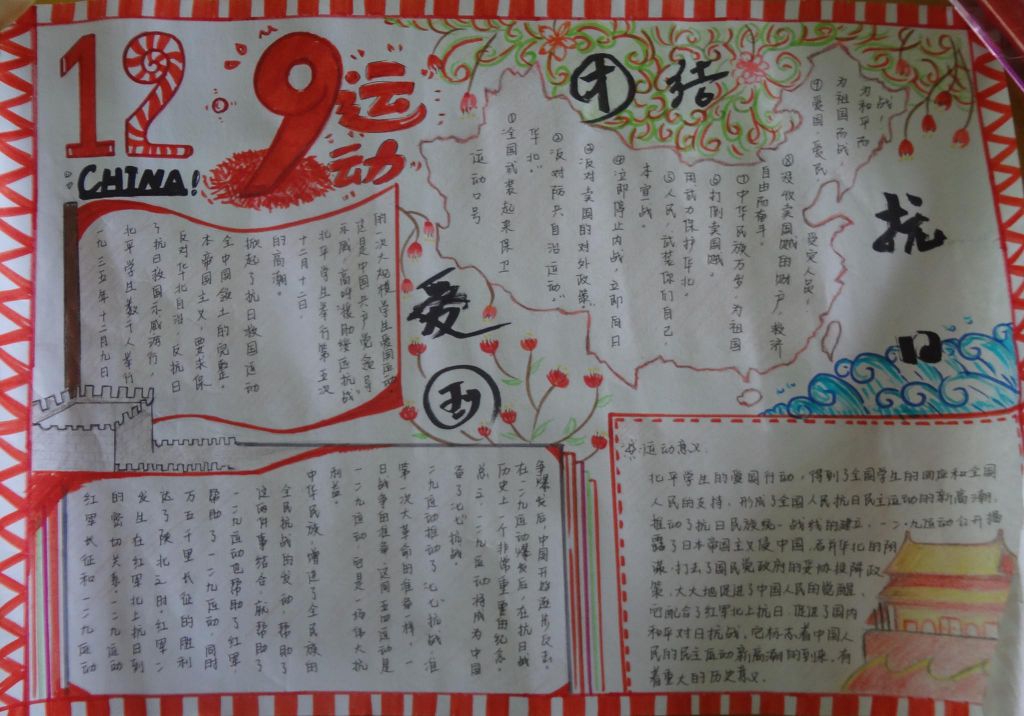 12·9运动
CHINA!
团结
抗日
爱国
一九三五年十二月九日
北平学生数千人举行
了抗日救国示威游行,
反对华北自治,反抗日
本帝国主义,要求保
全中国领土的完整,
掀起了抗日救国运动
的高潮。
十二月十二日,
北平学生举行第五次
示威,高呼援助绥远抗战
这是中国共产党领导
的一次大规模学生爱国运动
运动口号
①全国武装起来保卫
华北。
②反对防共自治运动。
③反对卖国的对外政策
④立即停止内战,立即向日
本宣战。
⑤人民,武装你们自己,
用武力保护华北。
⑥打倒卖国贼。
⑦中华民族万岁,为祖国
自由而奋斗。
⑧没收卖国贼的财产,救济
受灾人民。
⑨爱国,爱民
为祖国而战,
为和平而战,
红军长征和一二九运动
的密切关系。一二九运动
发生在红军北上抗日到
达了陕北之时红军二
万五千里长征的胜利
帮助了一二九运动,同时
一二九运动也帮助了红军
这两件事结合,就帮助了
全民抗战的发动,帮助了
中华民族,增进了全民族的
利益。
一二九运动,它是一场伟大抗
日战争的准备,这同五四运动是
第一次大革命的准备一样,一
二九运动推动了七七抗战,准
备了七七抗战。
总之,一二九运动将成为中国
历史上一个非常重要的纪念。
在一二九运动爆发后,在抗日战
争爆发后,中国开始反击
运动意义.
北平学生的爱国行动,得到了全国学生的响应和全国
人民的支持,形成了全国人民抗日民主运动的新高潮,
推动了抗日民族统一战线的建立,一二·九运动公开揭
露了日本帝国主义侵中国,吞并华北的阴
谋,打击了国民党政府的妥协投降政
策,大大地促进了中国人民的觉醒,
它配合了红军北上抗日,促进了国内
和平对日抗战,它标志着中国人
民的民主运动新高潮的到来,有
着重大的历史意义.